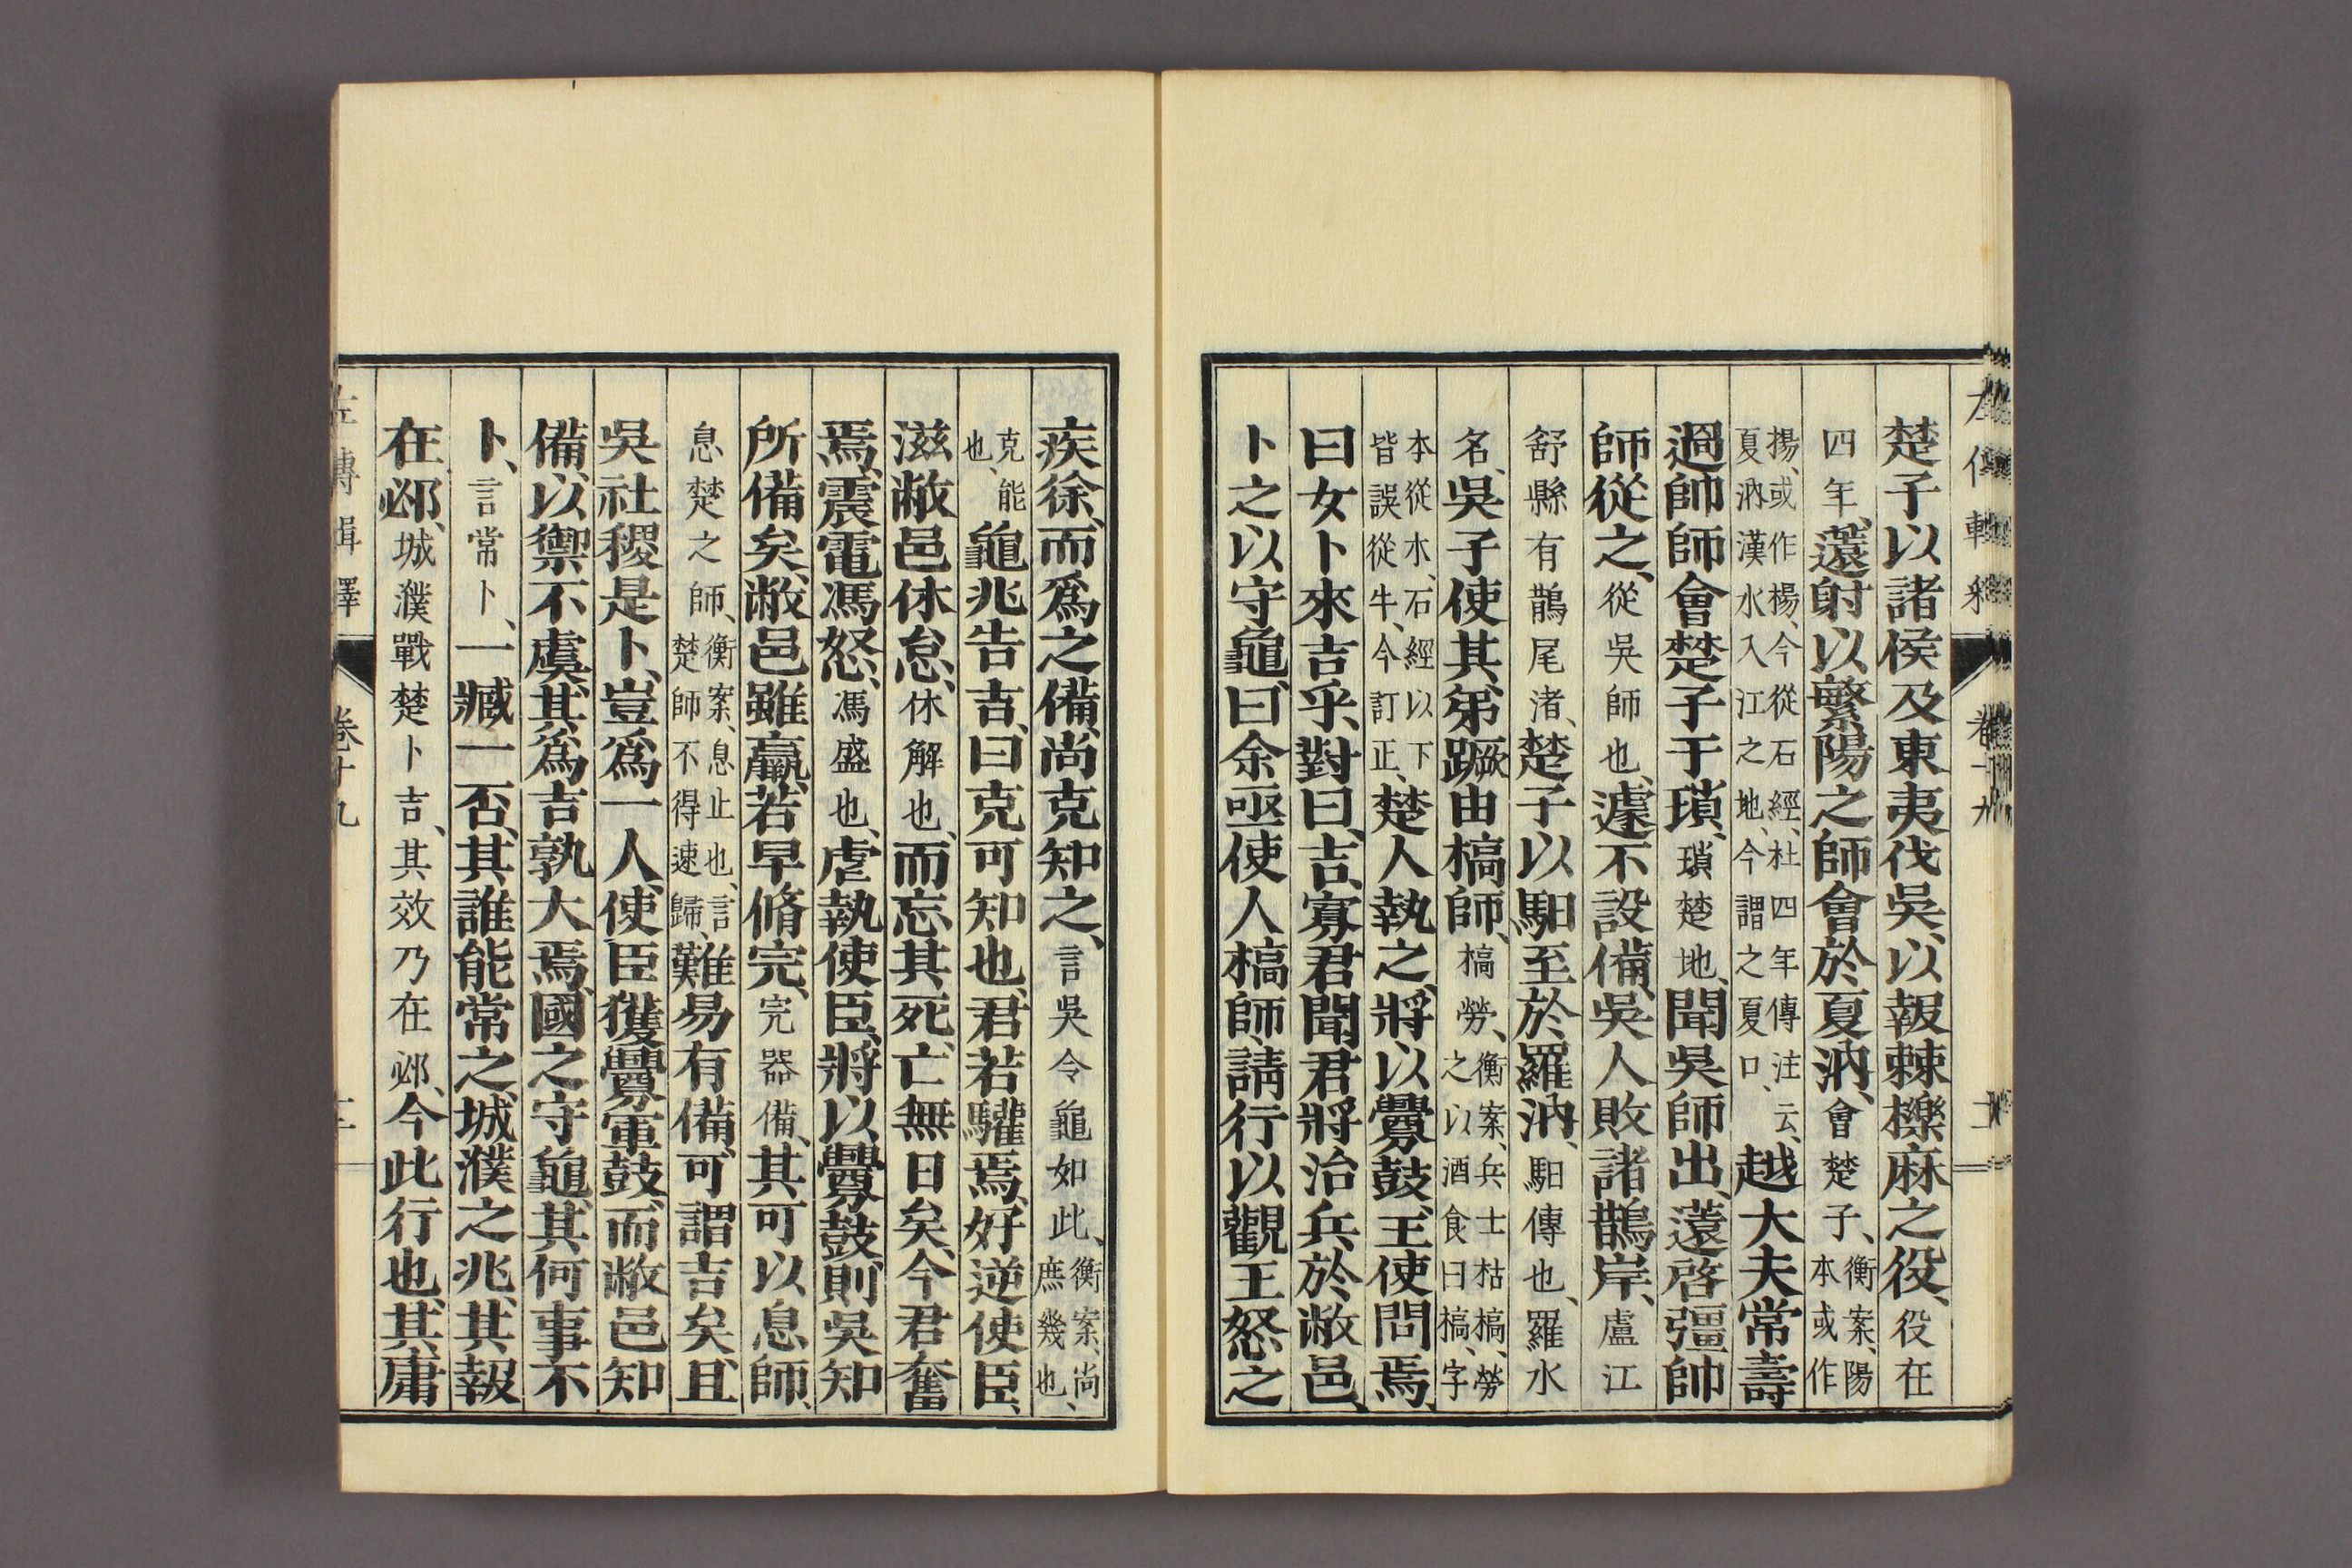 楚子以諸侯及東夷伐吳、以報棘櫟麻之役、役在
四年、薳射以繁陽之師會於夏汭、會楚子、衡案、陽本或作
揚、或作楊、今從石經、杜四年傳注云、夏汭漢水入江之地、今謂之夏口、越大夫常壽
過帥師會楚子于瑣、瑣楚地、聞吳師出、薳啓彊帥
師從之、從吳師也、遽不設備、吳人敗諸鵲岸、盧江
舒縣有鵲尾渚、楚子以馹至於羅汭、馹傳也、羅水
名、吳子使其弟蹶由槁師、槁勞、衡案、兵士枯槁、勞之以酒食曰槁、字
本從木、石經以下皆誤從牛、今訂正、楚人執之、將以釁鼓、王使問焉、
曰女卜來吉乎、對曰、吉、寡君聞君將治兵於敝邑、
卜之以守龜、曰、余亟使人槁師、請行以觀王怒之
疾徐、而爲之備、尚克知之、言吳令龜如此、衡案、尚庶幾也、
克能也、龜兆告吉、曰克可知也、君若驩焉、好逆使臣、
滋敝邑休怠、休解也、而忘其死、亡無日矣、今君奮
焉、震電馮怒、馮盛也、虐執使臣、將以釁鼓、則吳知
所備矣、敝邑雖羸、若早脩完、完器備、其可以息師、
息楚之師、衡案、息止也、言楚師不得速歸、難易有備、可謂吉矣、且
吳社稷是卜、豈爲一人、使臣獲釁軍鼓、而敝邑知
備、以禦不虞、其爲吉孰大焉、國之守龜、其何事不
卜、言常卜、一臧一否、其誰能常之、城濮之兆、其報
在邲、城濮戰楚卜吉、其效乃在邲、今此行也、其庸
左傳輯釋 卷十九